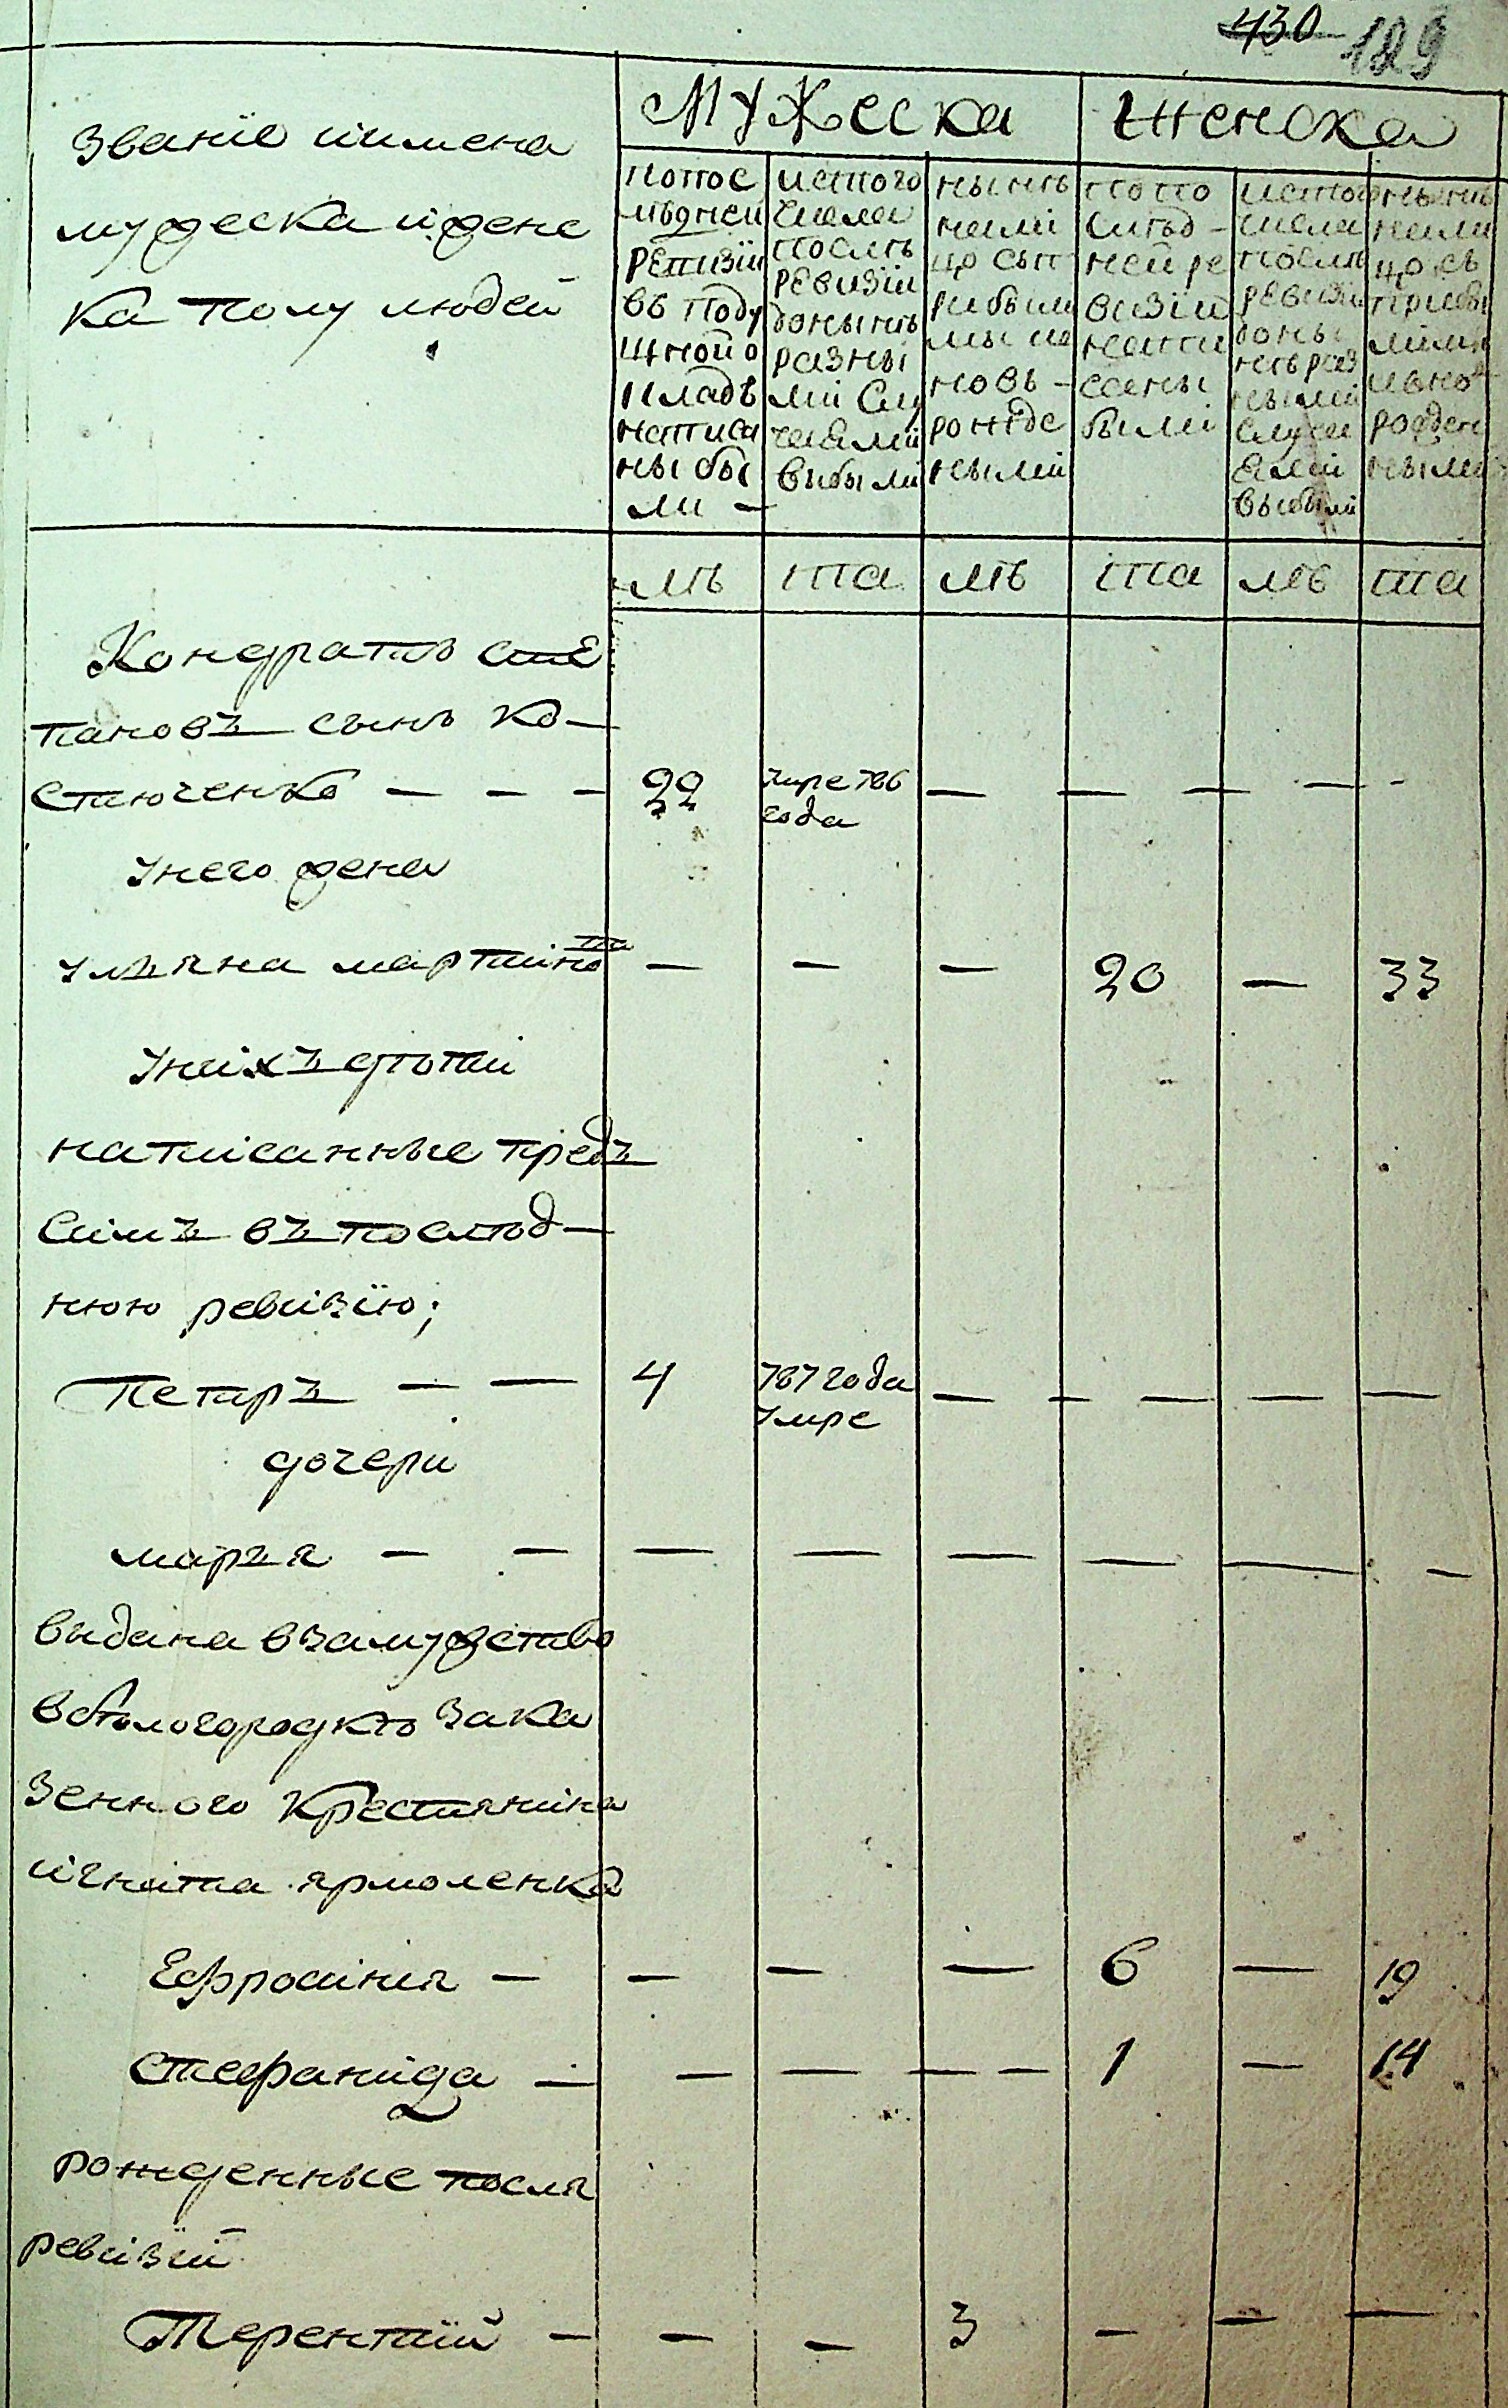 430 129
Званїе иимена
мужеска иженс
ка полу людей
Мужеска
Женска
попос
лѣдней
ревизїи
въ поду
шной о
кладъ
написа
ны бы
ли —
истого
числа
послѣ
ревизїи
донынѣ
разны
ми слу
чаями
выбыли
нынѣ
нали
цо съп
рибылы
мы и
новь-
рожде
ными
по по
слѣд-
ней ре
визїи
напи
саны
были
истого
числа
послѣ
ревизїи
доны
нѣ раз
ными
случа
ями
выбыли
нынѣ
нали
цо съ
прибы
лыми
ивно
рожден
ными
лѣ та лѣ та лѣ та
Кондратъ сте
пановъ сынъ ко-
стюченко — — — 22 умре 786 — — — — -
года
унего жена
ульяна мартинова — — — 20 — 33
унихъ дѣти
написанные предъ
симъ въ послѣд-
нюю ревизїю;
Петръ — — 4 787 года — — — — —
умре
дочери
марья — — — — — — — —
выдана взамужство
вбѣлогородкѣ зака
зенного крестянина
игната ярмоленка
Ефросинїя — — — — 6 — 19
стефанида — — — — — 1 — 14
рожденные посля
ревизїи
Терентїй — — — 3 — — —